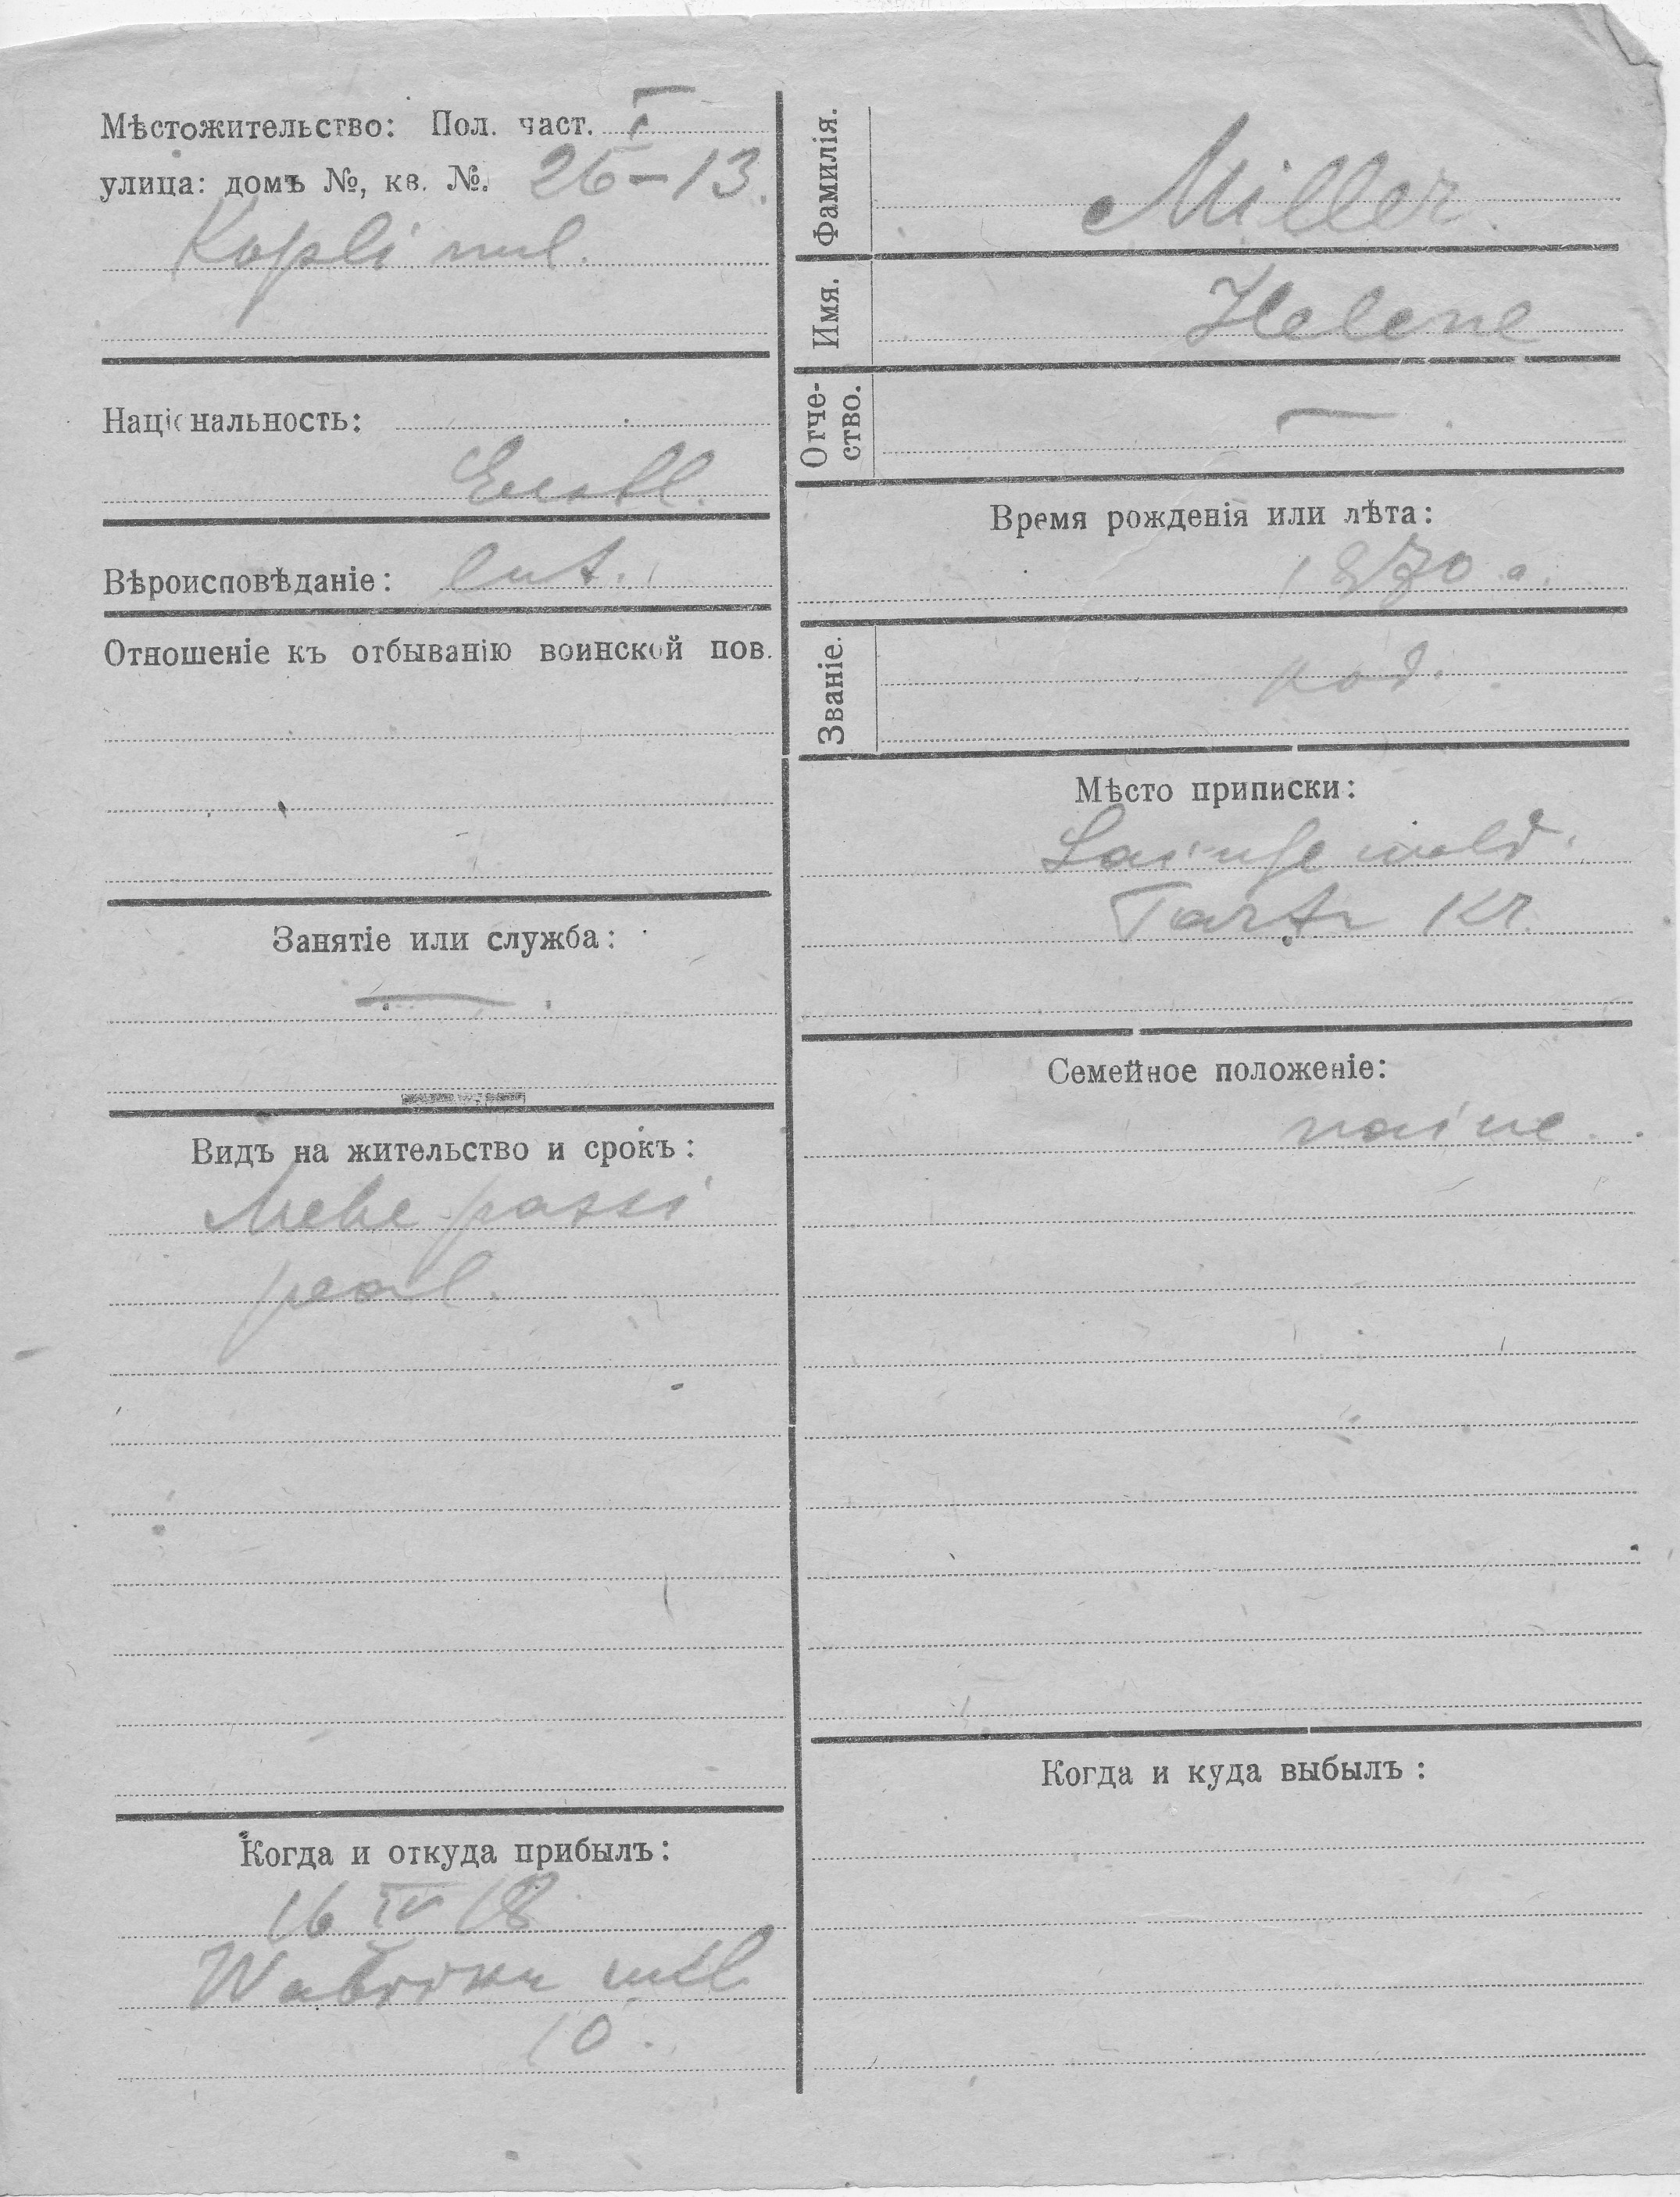 Мѣстожительство: Пол. част. I
улица: домъ №, кв. №. 26-13.
Kopli uul.
Національность:
Eestl.
Вѣроисповѣданіе: lut.
Отношеніе къ отбыванію воинской пов.
Занятіе или служба:
—
Видъ на жительство и срокъ:
Mehe passi
peal.
Когда и откуда прибылъ:
16 IV 18
Wabriku uul
10.
Фамилія. Miller
Имя. Helene
Отче-
ство. —
Время рожденія или лѣта:
1870 a.
Званіе.
Мѣсто приписки:
wald.
Tartu Kr.
Семейное положеніе:
naine.
Когда и куда выбылъ: